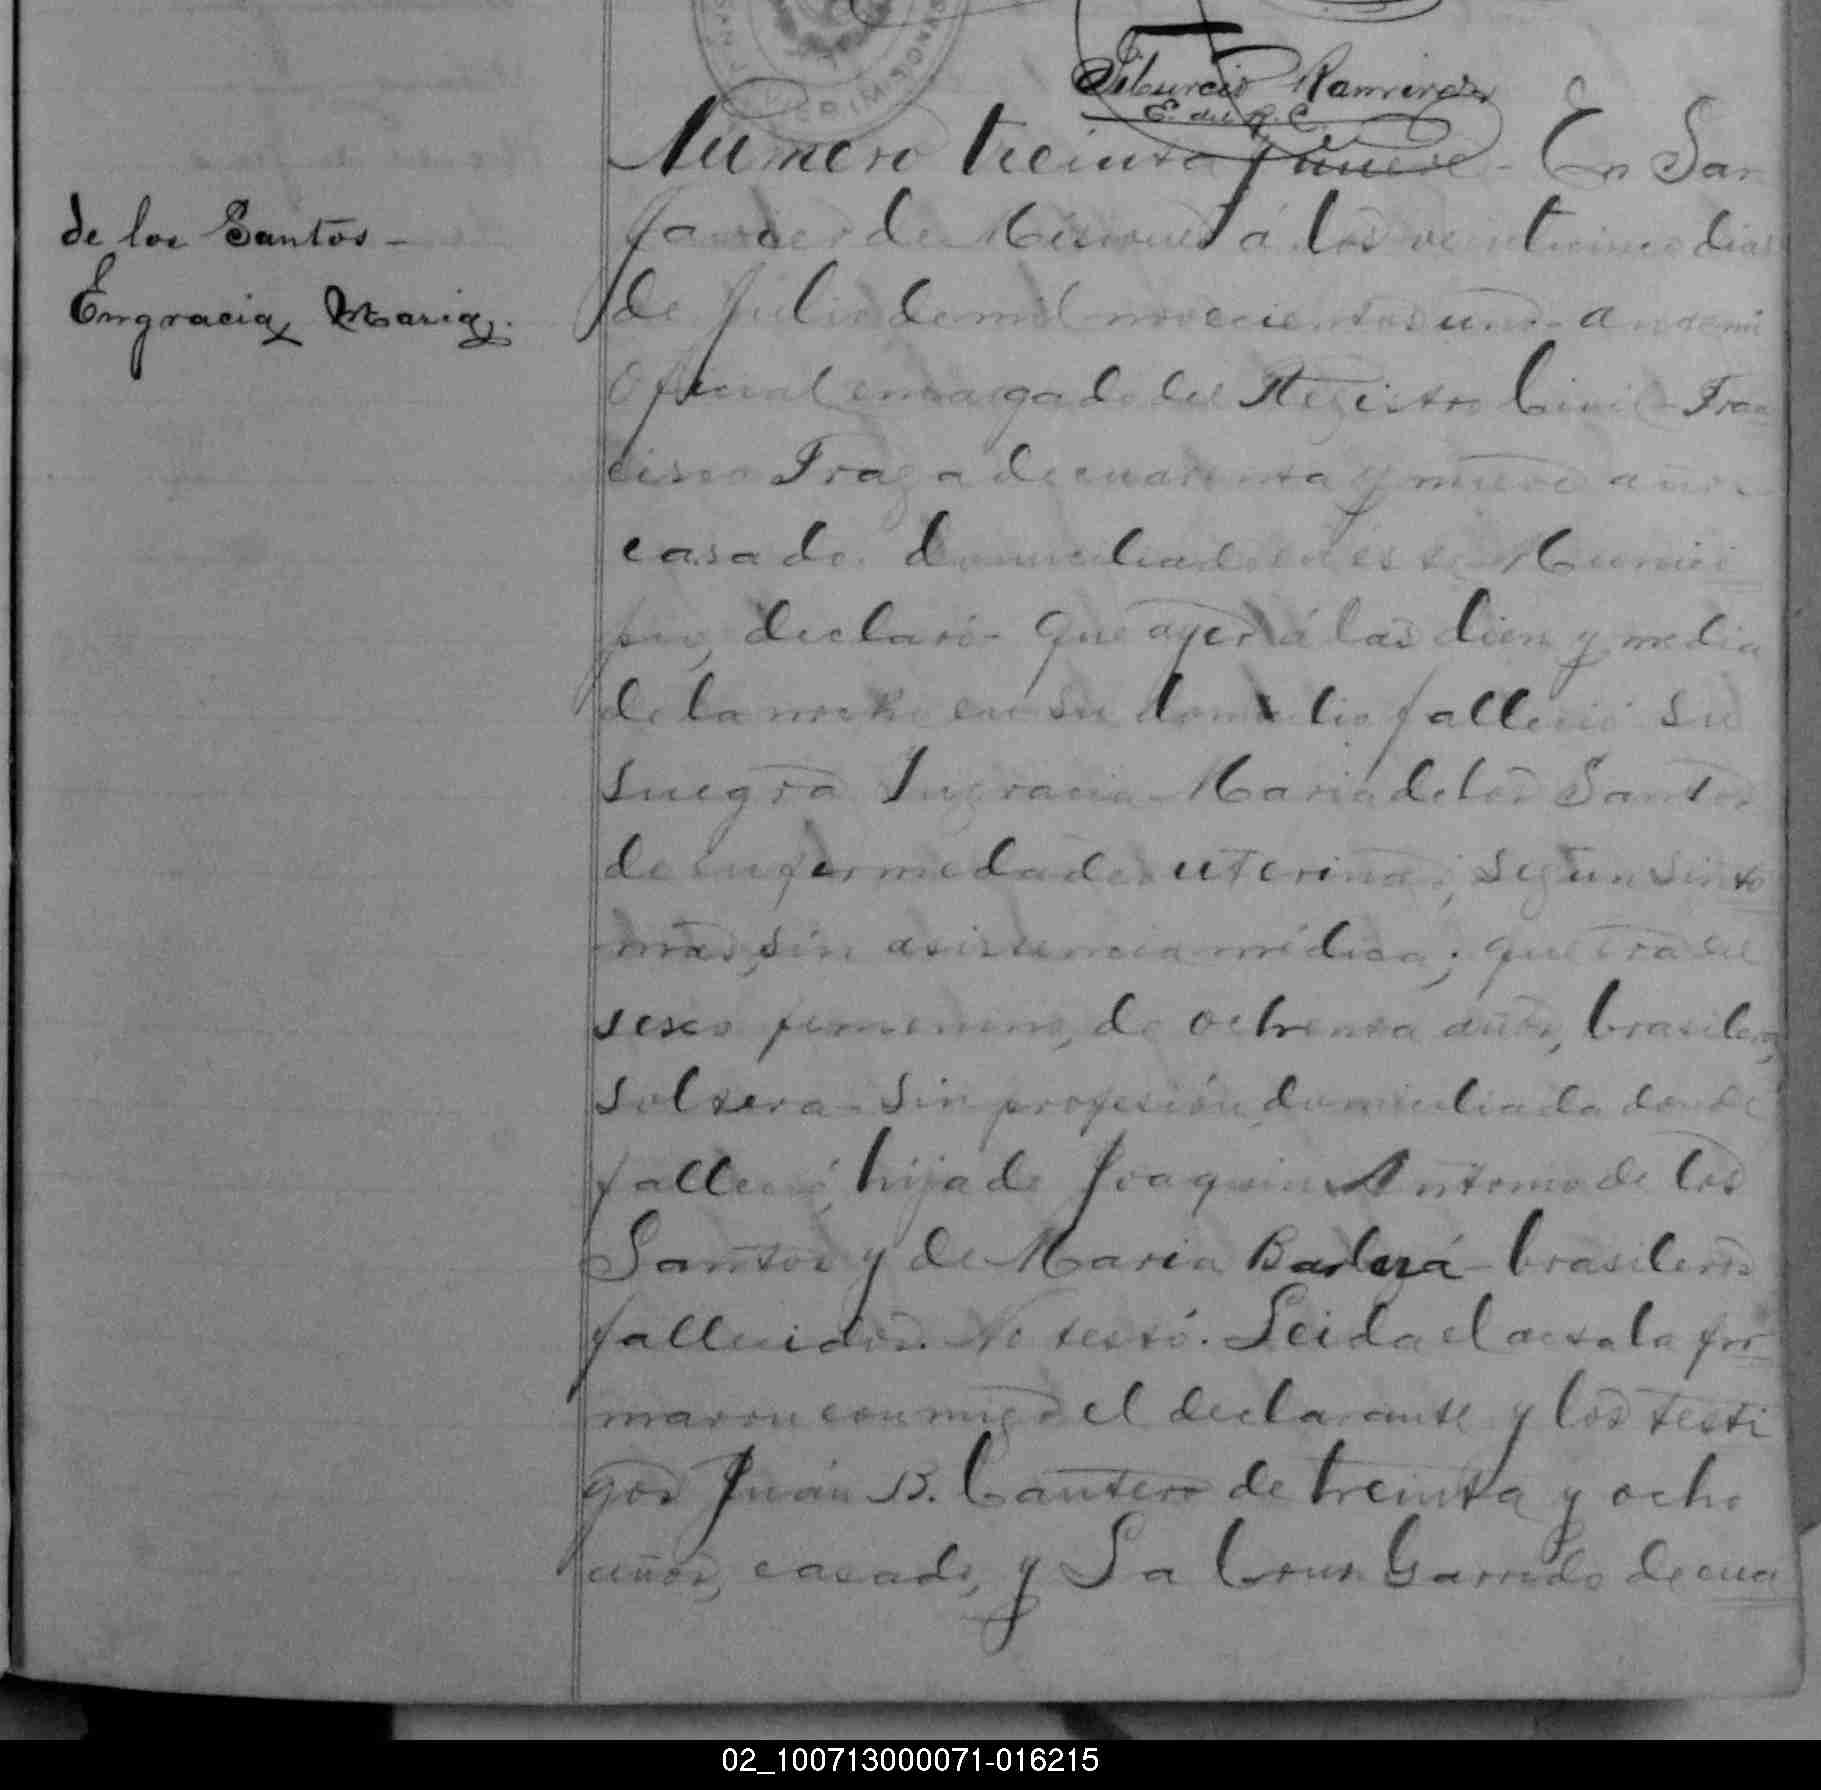 Tiburcio Ramirez
E. del R. C.
de los Santos -
Engracia Maria.
Numero treinta y nueve - En San
Javier de Misiones á los veinticinco dias
de Julio de mil novecientos uno - ante mi
Oficial encargado del Registro Civil - Fran
cisco Fraga de cuarenta y nueve años -
casado. domiciliado en este Munici
pio, declaró - Que ayer á las diez y media
de la noche en su domicilio falleció su
suegra Ingracia Maria de los Santos
de enfermedades uterinas, segun sinto
mas, sin asistencia médica; que era del
sexo femenino, de ochenta años, brasilera,
soltera - sin profesión, domiciliada donde
falleció, hija de Joaquin Antonio de los
Santos y de Maria - brasileros
fallecidos. No testó. Leida el acta la fir
maron conmigo el declarante y los testi
gos Juán B. Cantero de treinta y ocho
años, casado, y La Cruz Garrido de cua
02_100713000071-016215